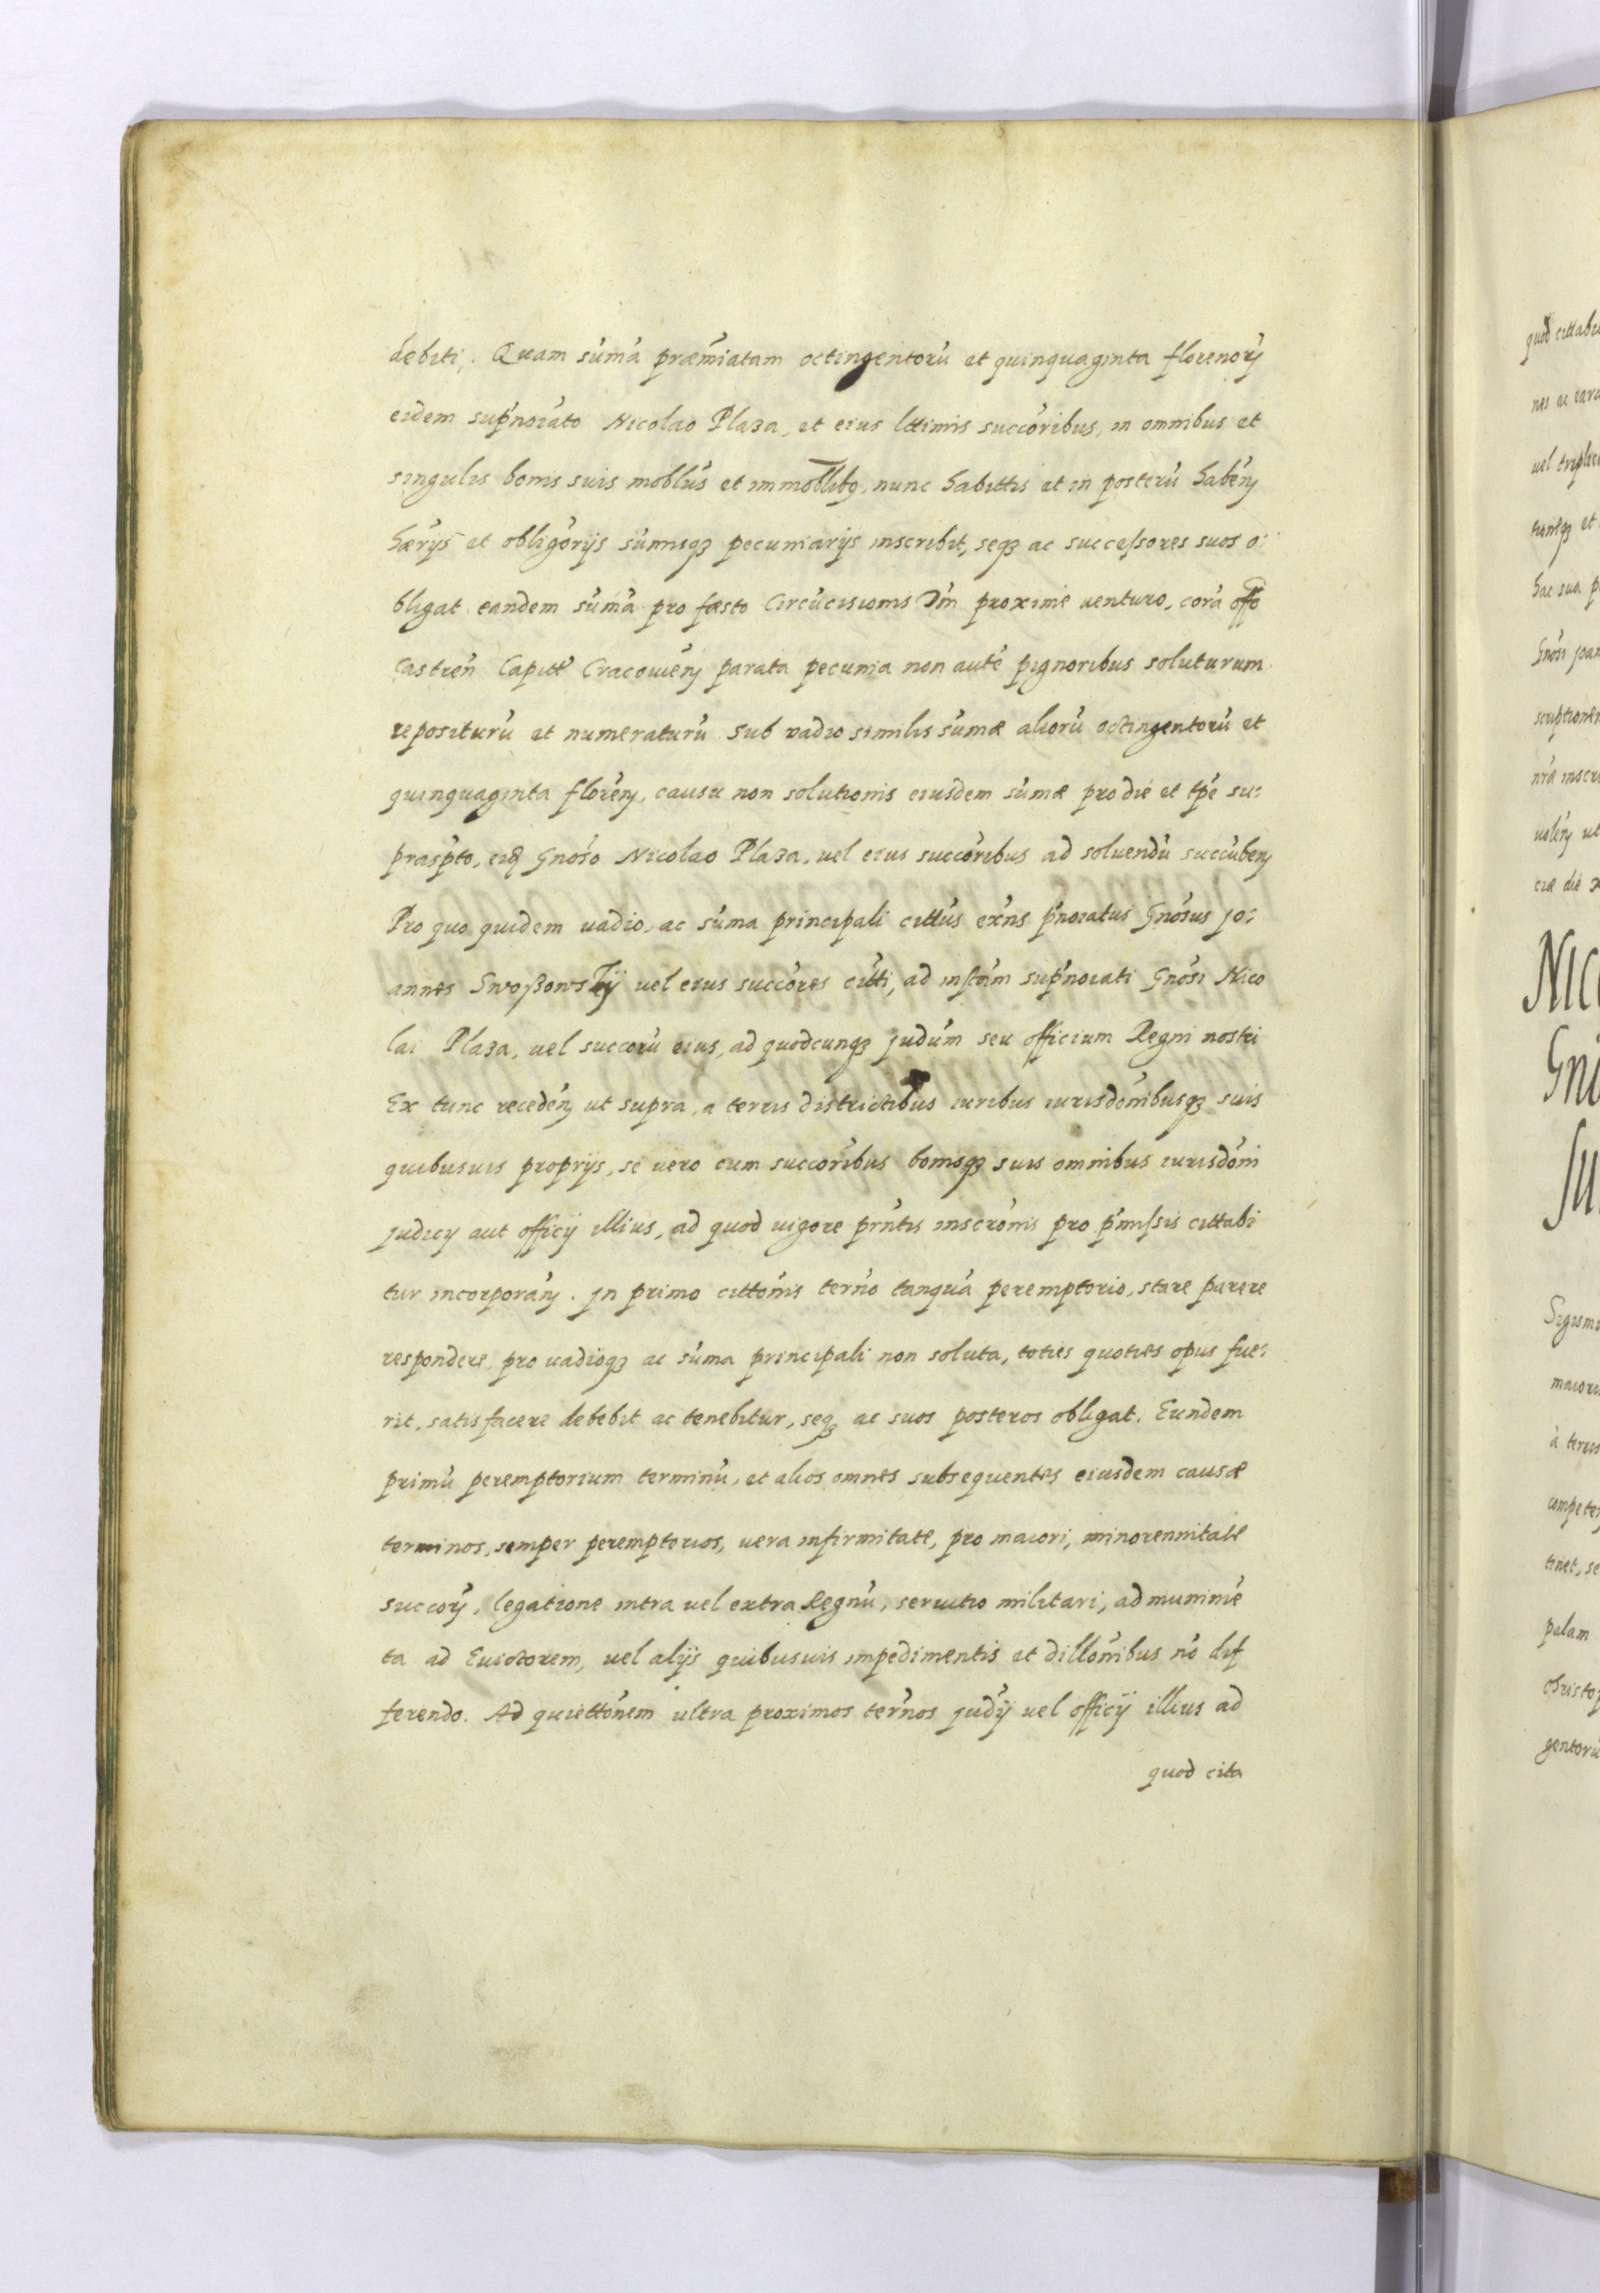 debiti. Quam sum̃a præmiatam octingentorũ et quinquaginta florenorų
eidem supñoiato Nicolao Plaza, et eius lttimis succõribus, in omnibus et
singulis bonis suis moblũs et immoblibꝫ, nunc habittis et in posterũ habeñ
hærijs et obligõrijs sum̃isqꝫ pecuniarijs inscribit, seqꝫ ac successores suos o:
bligat eandem sum̃a pro fæsto Circũcisionis Dñi proxime venturo, corã offo
Castreñ Capitł Cracovieñ parata pecunia non autẽ pignoribus soluturum
repositurũ et numeraturũ sub vadio similis sum̃æ aliorũ octingentorũ et
quinquaginta floreñ, causa non solutionis eiusdem sum̃æ pro die et tp̃e su:
prasp̃to, eidẽ Gnõso Nicolao Plaza, vel eius succõribus ad soluendũ succũbeñ
Pro quo quidem vadio, ac sum̃a principali cittũs ex̃ns p̃noiatus Gnõsus Jo:
annes Swoßowskij vel eius succõres citti, ad instãm sup̃noiati Gnõsi Nico
lai Plaza, vel succorũ eius, ad quodcunqꝫ judũm seu officium Regni nostri
Ex tunc recedeñ ut supra, a terris districtibus iuribus iurisdõnibusqꝫ suis
quibusuis proprijs, se vero cum succõribus bonisqꝫ suis omnibus iurisdõni
judicij aut officij illius, ad quod vigore p̃ntis inscrõnis pro p̃missis cittabi
tur incorporañ. Jn primo cittõnis ter̃no tanquã peremptorio, stare parere
respondere, pro vadioqꝫ ac sum̃a principali non soluta, toties quoties opus fue:
rit, satisfacere debebit ac tenebitur, seqꝫ ac suos posteros obligat. Eundem
primũ peremptorium terminũ, et alios omnes subsequentes eiusdem causæ
terminos, semper peremptorios, vera infirmitate, pro maiori, minorennitate
succorų, legatione intra vel extra Regnũ, servitio militari, ad munimẽ
ta ad Euictorem, vel alijs quibusuis impedimentis et dillõnibus nõ dif
ferendo. Ad quiettõnem ultra proximos ter̃nos judij vel officij illius ad
quod cita